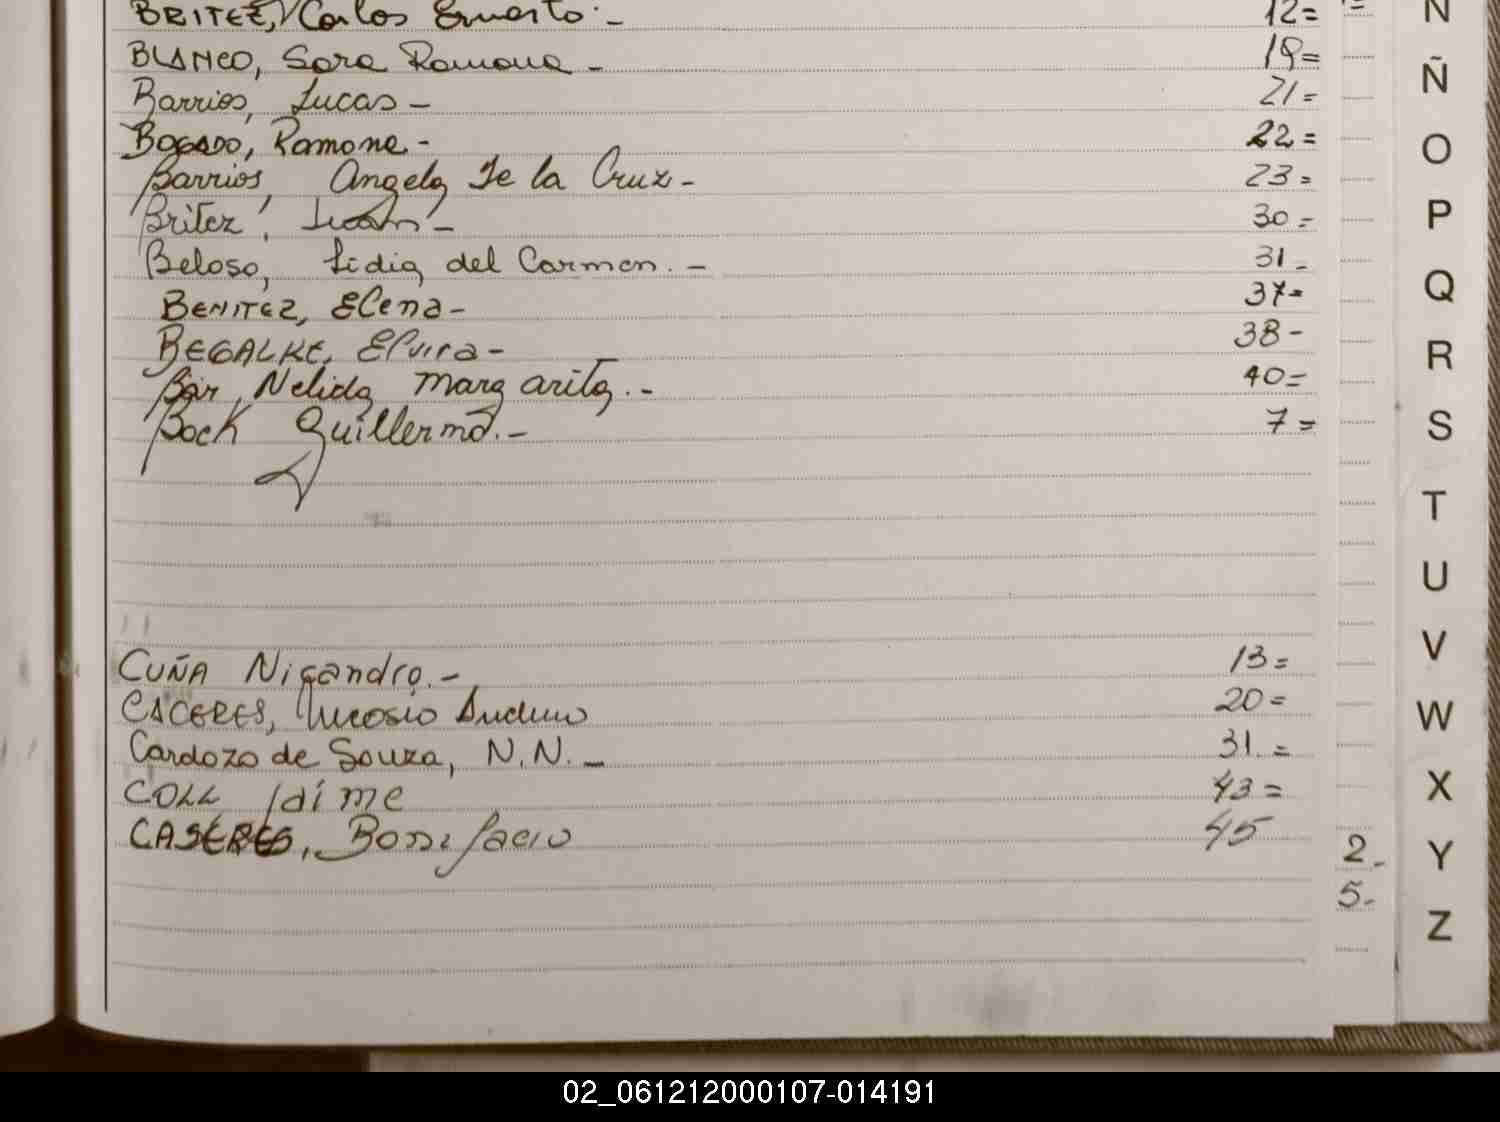 BRITEZ, Carlos Ernesto.- 12=
BLANCO, Sara Ramona - 19=
Barrios, Lucas - 21=
BOGADO, Ramona.- 22=
Barrios, Angela De la Cruz - 23=
Britez, Juan - 30.=
Beloso, Lidia del Carmen. - 31-
BENITEZ, Elena - 37=
BEGALKE, Elvira - 38-
Bär, Nelida Margarita.- 40=
Bock Guillermo.- 7=
CUÑA Nicandro.- 13=
CACERES, 20=
Cardozo de Souza, N.N. - 31.=
COLL Jaime 43=
CASERES, Bonifacio 45
2-
5-
N
Ñ
O
P
Q
R
S
T
U
V
W
X
Y
Z
02_061212000107-014191